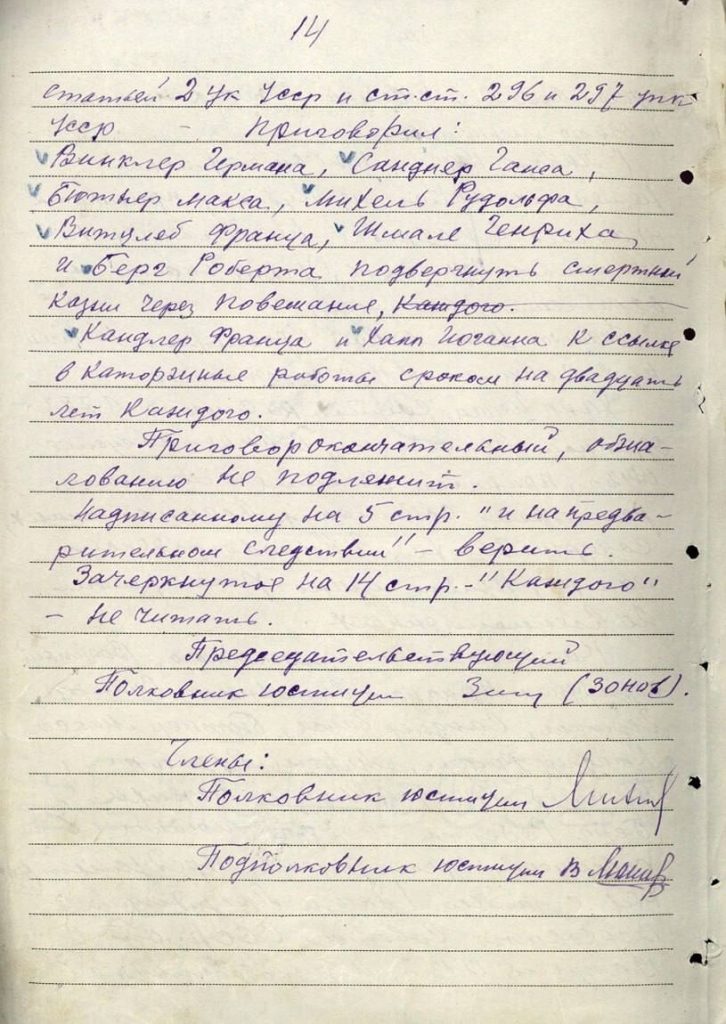 14
статьей 2 ук усср и ст.ст. 296 и 297 упк
усср - приговорил:
Винклер Германа, Санднер Ганса,
Бютнер Макса, Михель Рудольфа,
Витцлеб Франца, Шмале Генриха
и Берг Роберта подвергнуть смертной
казни через повешание, каждого.
Кандлер Франца и Хапп Иоганна к ссылке
в каторжные работы сроком на двадцать
лет каждого.
Приговор окончательный, обжа-
лованию не подляжит.
Надписанному на 5 стр. "и на предва-
рительном следствии" - верить.
Зачеркнутое на 14 стр. - "Каждого"
- не читать.
Председательствующий
Полковник юстиции (Зонов).
Члены:
Полковник юстиции
Подполковник юстиции В